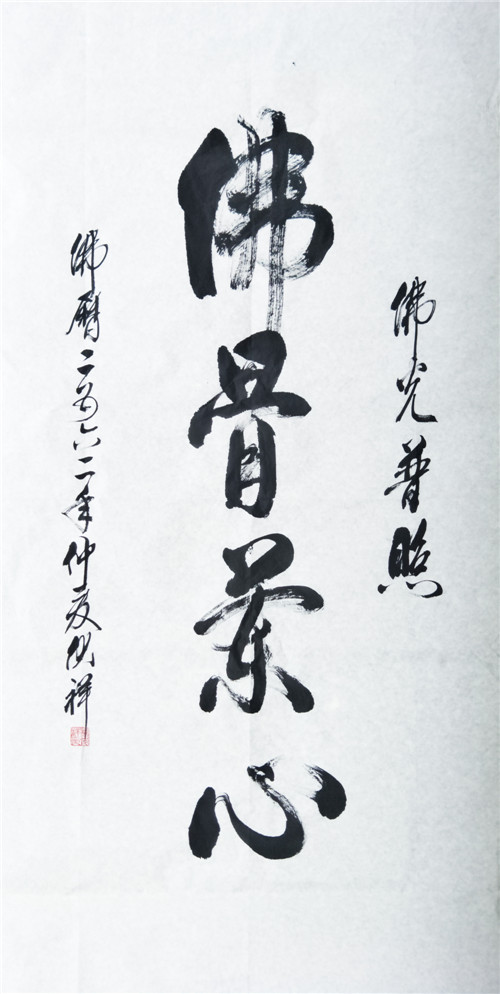 佛光普照
佛骨蘭心
佛曆二五六二年仲夏祥